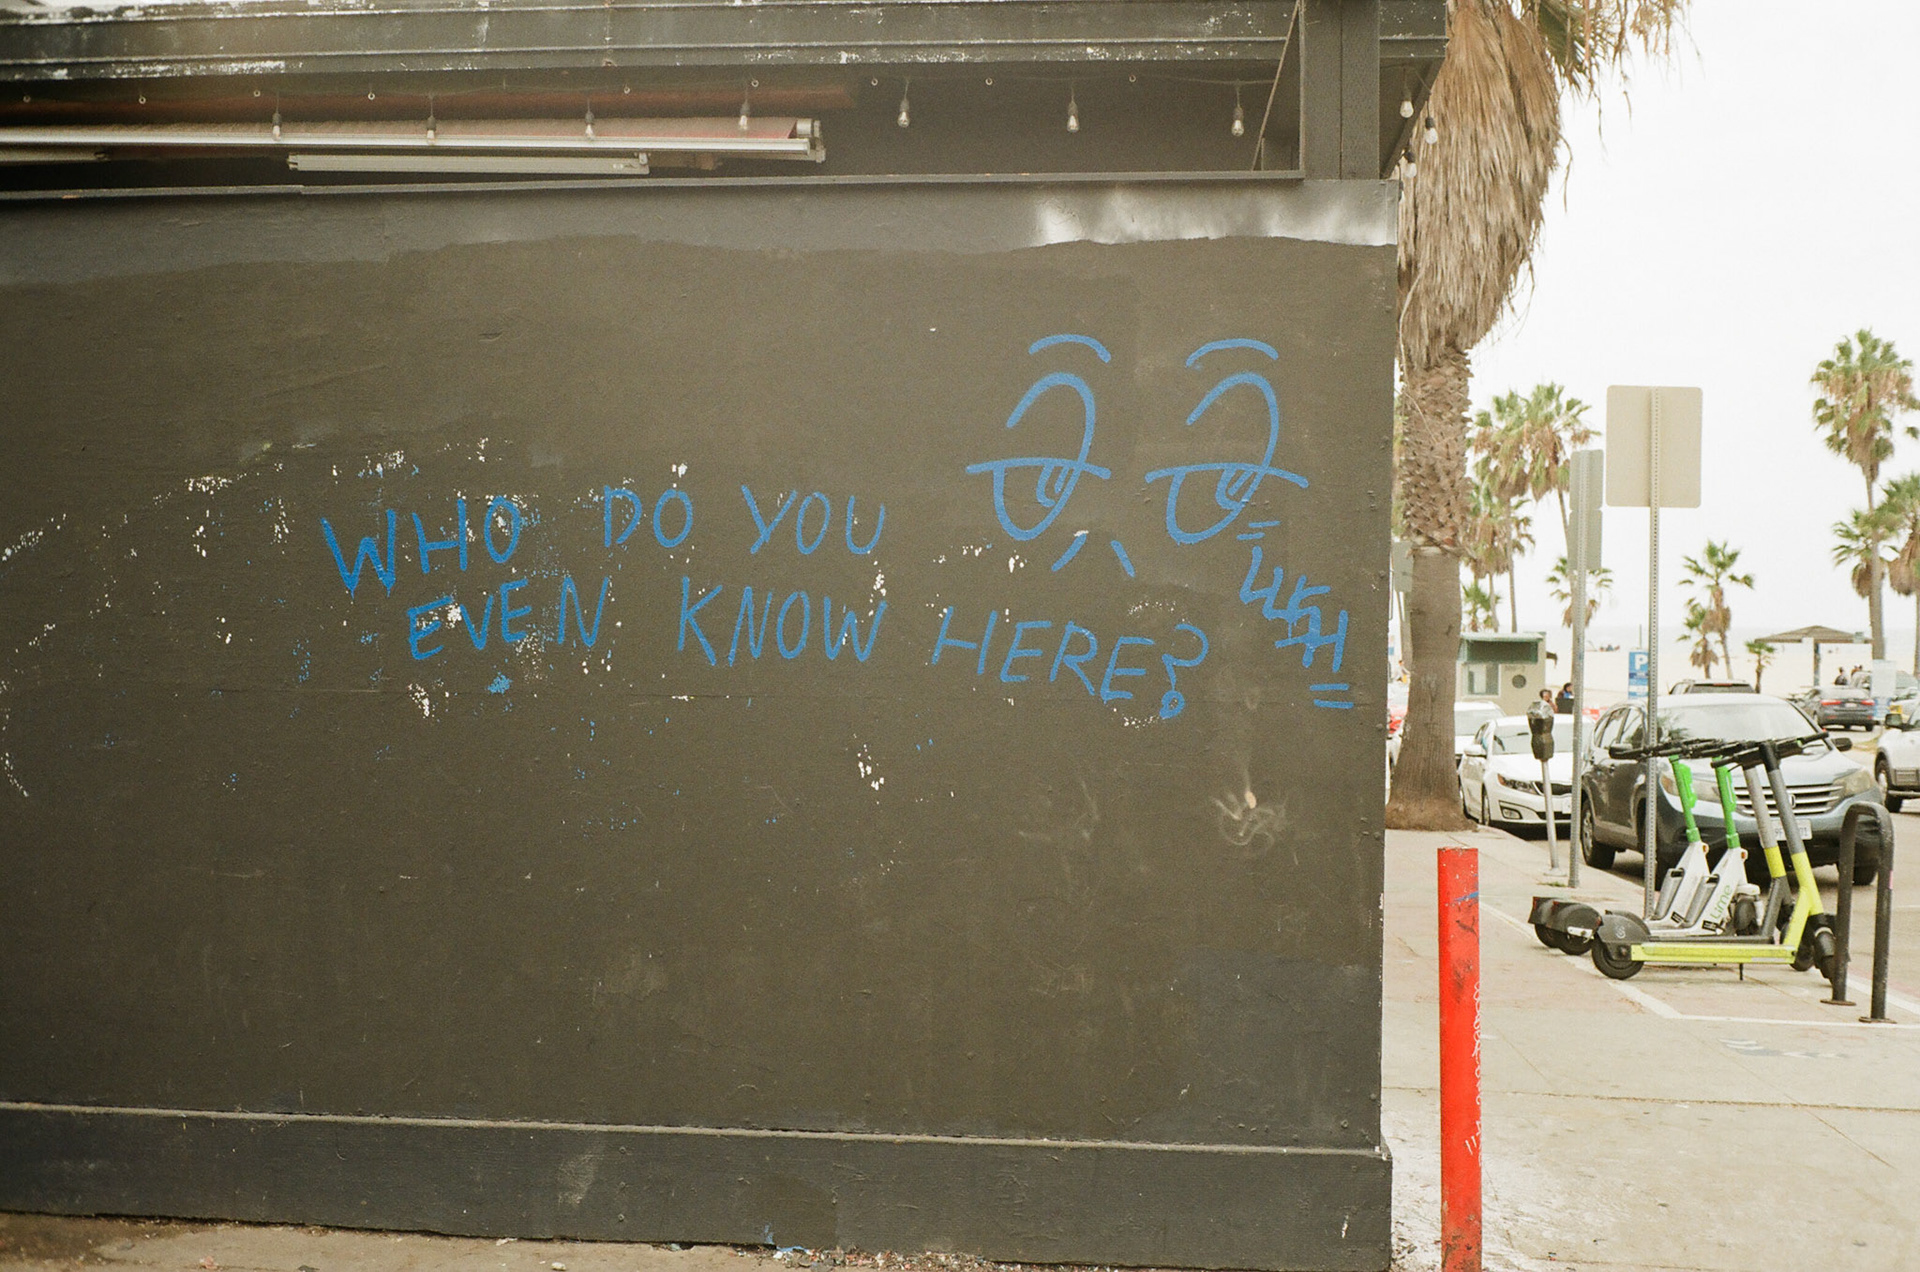 WHO DO YOU
EVEN KNOW HERE?
P
Lime